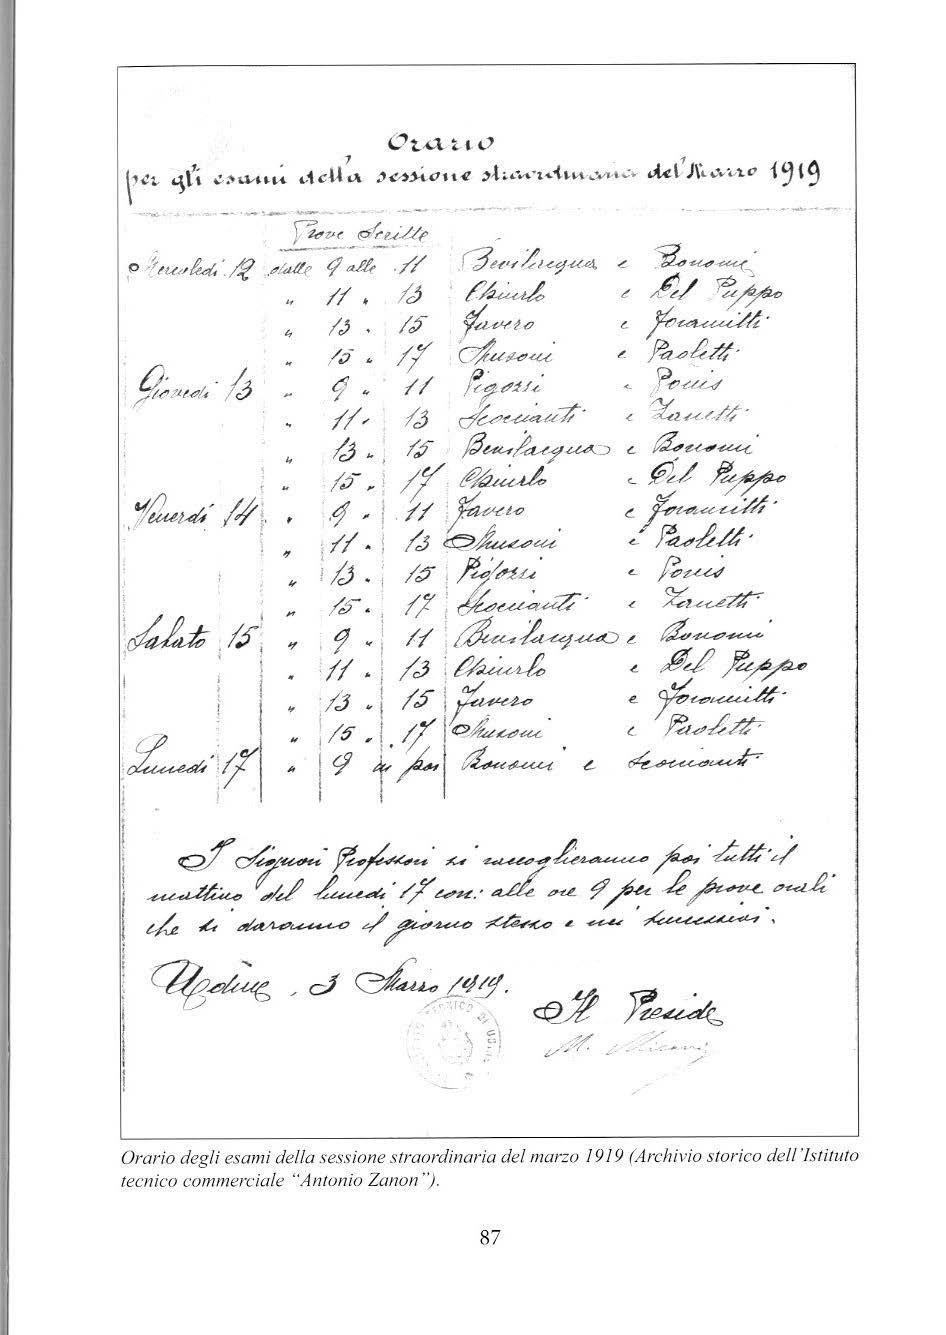 Orario
per gli esami della sessione straordinaria del Marzo 1919
Prove Scritte
Mercoledi 12 dalle 9 alle 11 Bevilacqua e Bonomi
„ 11 „ 13 Chiurlo e Del Puppo
„ 13 „ 15 Favero e Foramitti
„ 15 „ 17 Musoni e Paoletti
Giovedi 13 „ 9 „ 11 Pigozzi e Ponis
„ 11 „ 13 Scoccianti e Zanetti
„ 13 „ 15 Bevilacqua e Bonomi
„ 15 „ 17 Chiurlo e Del Puppo
Venerdi 14 „ 9 „ 11 Favero e Foramitti
„ 11 „ 13 Musoni e Paoletti
„ 13 „ 15 Pigozzi e Ponis
„ 15 „ 17 Scoccianti e Zanetti
Sabato 15 „ 9 „ 11 Bevilacqua e Bonomi
„ 11 „ 13 Chiurlo e Del Puppo
„ 13 „ 15 Favero e Foramitti
„ 15 „ 17 Musoni e Paoletti
Lunedi 17 „ 9 in poi Bonomi e Scoccianti
I Signori Professori si raccoglieranno poi tutti il
mattino del lunedi 17 corr: alle ore 9 per le prove orali
che si daranno il giorno stesso e nei successivi.
Udine, 3 Marzo 1919.
Il Preside
M.
TECNICO DI UDINE
Orario degli esami della sessione straordinaria del marzo 1919 (Archivio storico dell'Istituto
tecnico commerciale “Antonio Zanon”).
87